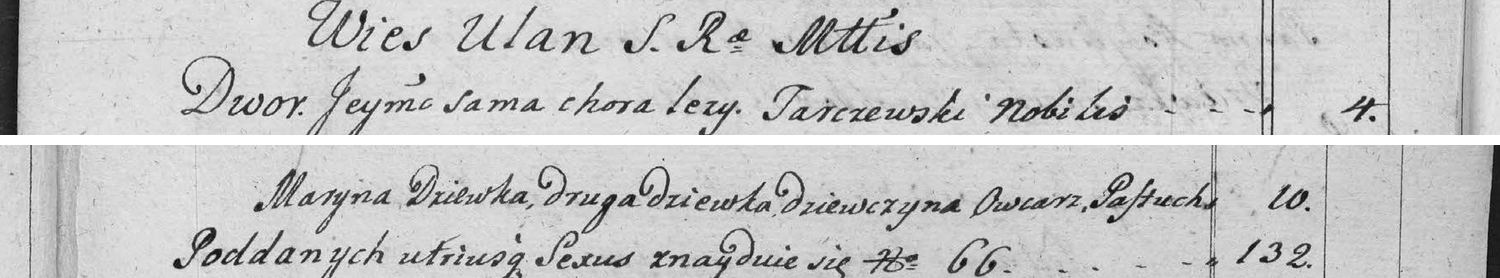 Wies Ulan S. Rae Mttis
Dwor. Jeymc sama chora lezy. Tarczewski Nobilis - - - 4.
Maryna Dziewka, druga dziewka, dziewczyna Owcarz, Pastuch 10.
Poddanych utriusq Sexus znayduie się 66. - - - - 132.